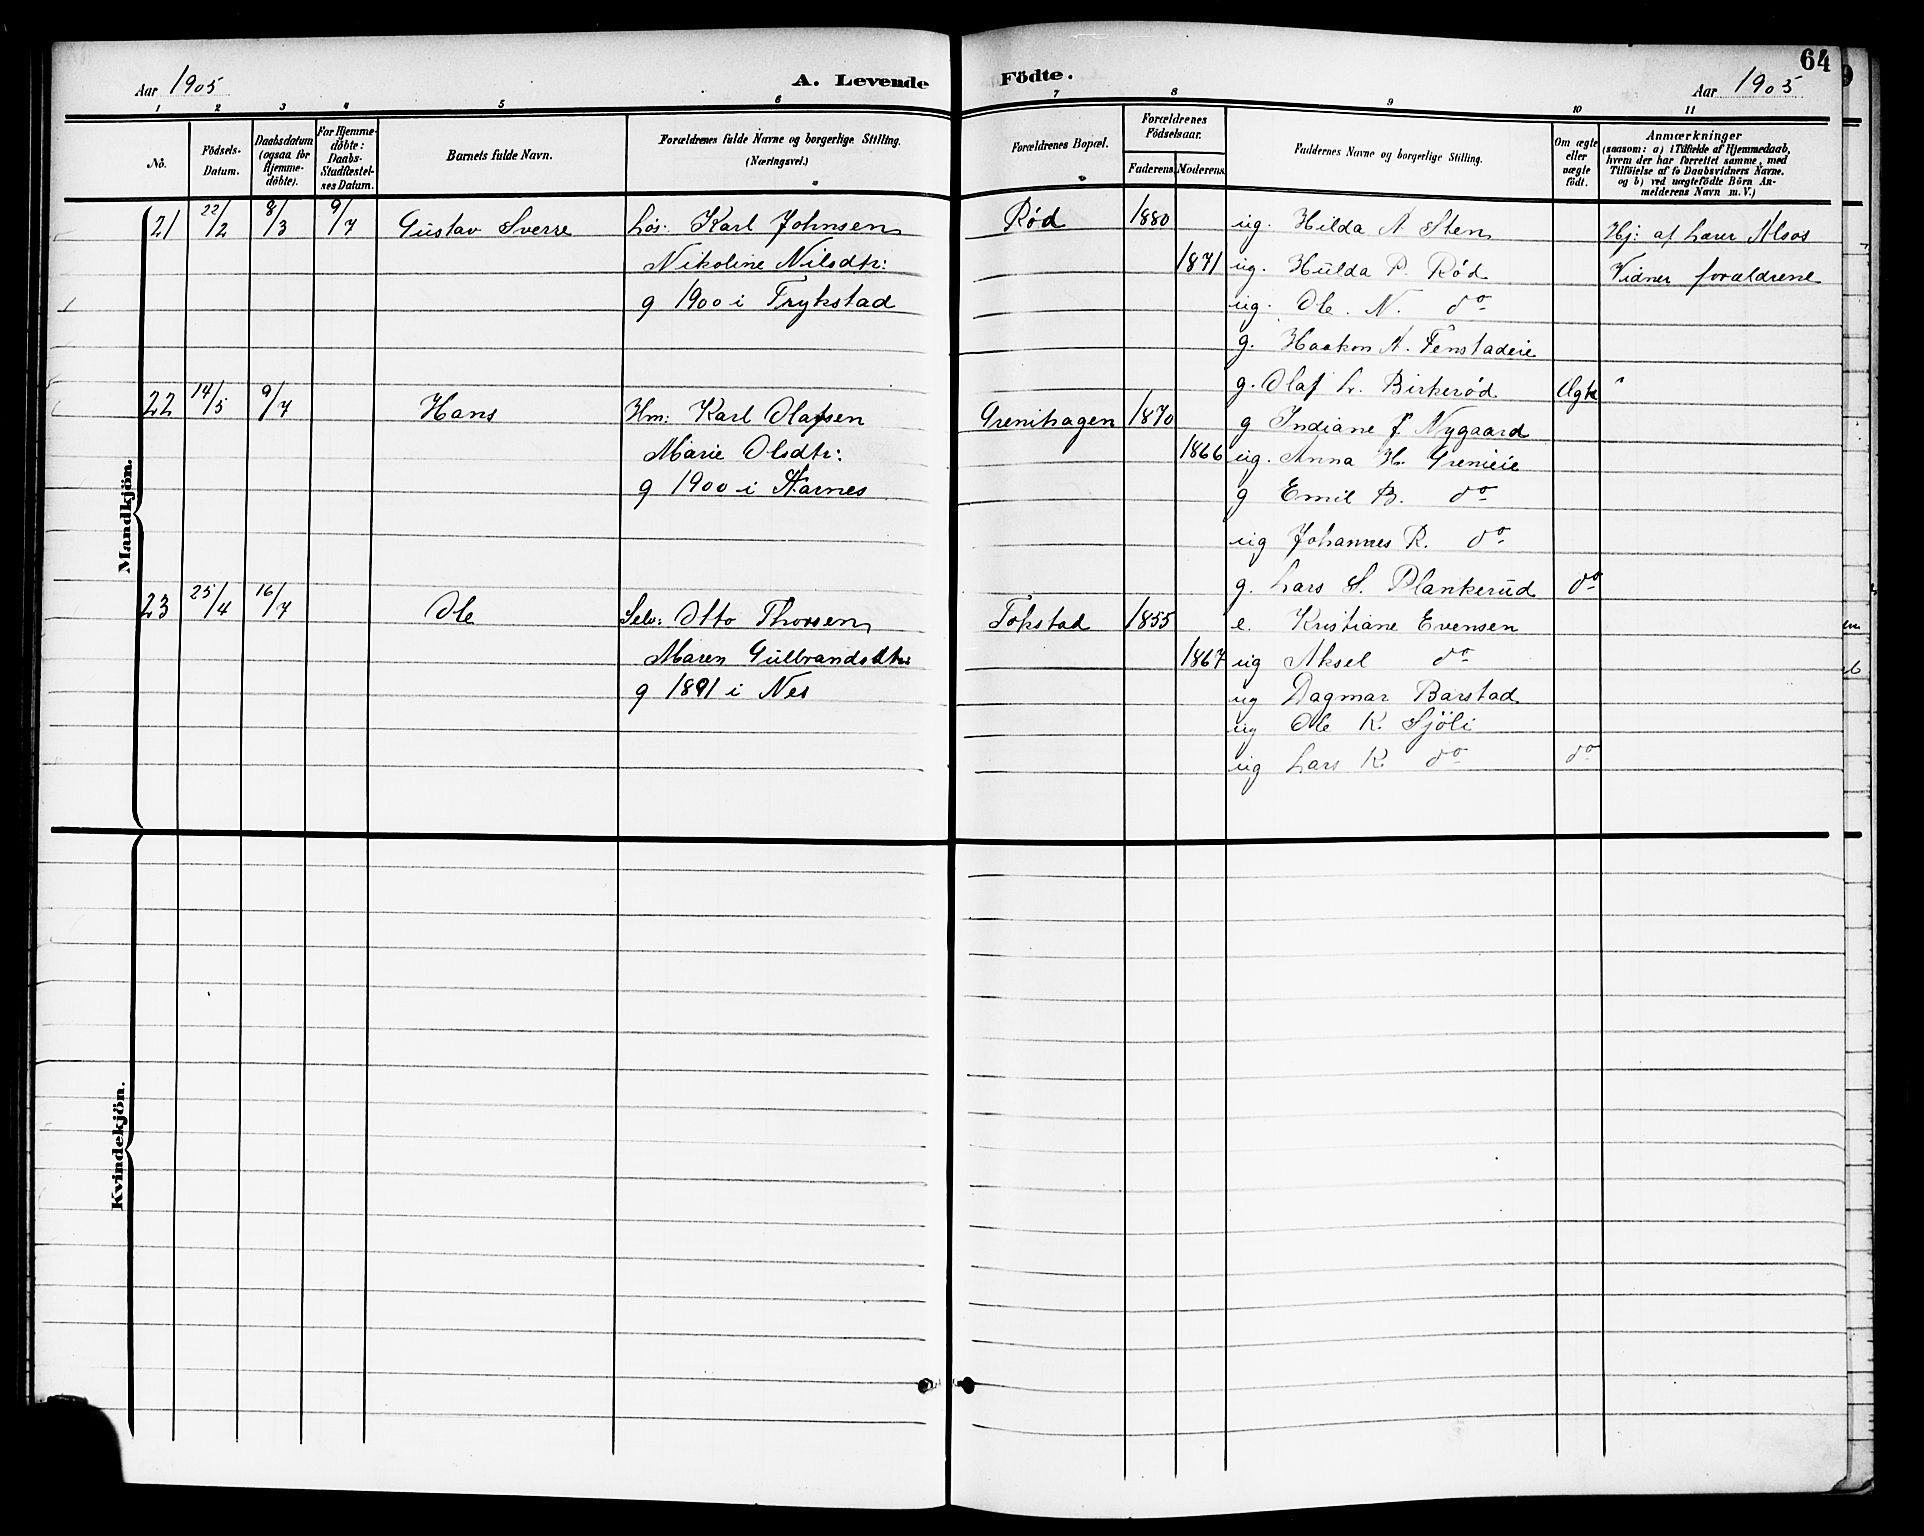 64
Aar 1905 A. Levende Födte. Aar 1905
1 2 3 4 5 6 7 8 9 10 11
Nô. Födsels-Datum. Daabsdatum (ogsaa for Hjemme-döbte). For Hjemme-döbte: Daabs-Stadfæstel-ses Datum. Barnets fulde Navn. Forældrenes fulde Navne og borgerlige Stilling. (Næringsvei.) Forældrenes Bopæl. Forældrenes Födselsaar. Faderens. Moderens. Faddernes Navne og borgerlige Stilling. Om ægte eller uægte födt. Anmærkninger (saasom: a) i Tilfælde af Hjemmedaab, hvem der har forrettet samme, med Tilföielse af to Daabsvidners Navne, og b) ved uægtefödte Börn An-melderens Navn m. V.)
Mandkjön.
21 22/2 8/3 9/7 Gustav Sverre Løs: Karl Johnsen Rød 1880 ug. Hilda A Sten Hj: af Lærer Alsos
Nikoline Nilsdtr: 1871 ug. Hulda P. Rød Vidner forældrene
g 1900 i Trykstad ug. Ole. N. do
g. Haakon A. Fenstadeie
g. Olaf L. Birkerød Ægte "
22 14/5 9/7 Hans Hm: Karl Olafsen Grenihagen 1870 g Indiane J. Nygaard
Marie Olsdtr: 1866 ug. Anna H. Grenieie
g 1900 i Aarnes g Emil B. do
ug Johannes R. do
g. Lars S. Plankerud do
23 25/4 16/7 Ole Selv: Otto Thorsen Tokstad 1855 e. Kristiane Evensen
Maren Gulbrandsdtr: 1867 ug Aksel do
g 1891 i Nes ug Dagmar Barstad
ug Ole K. Sjöli
ug Lars K do do
Kvindekjön.